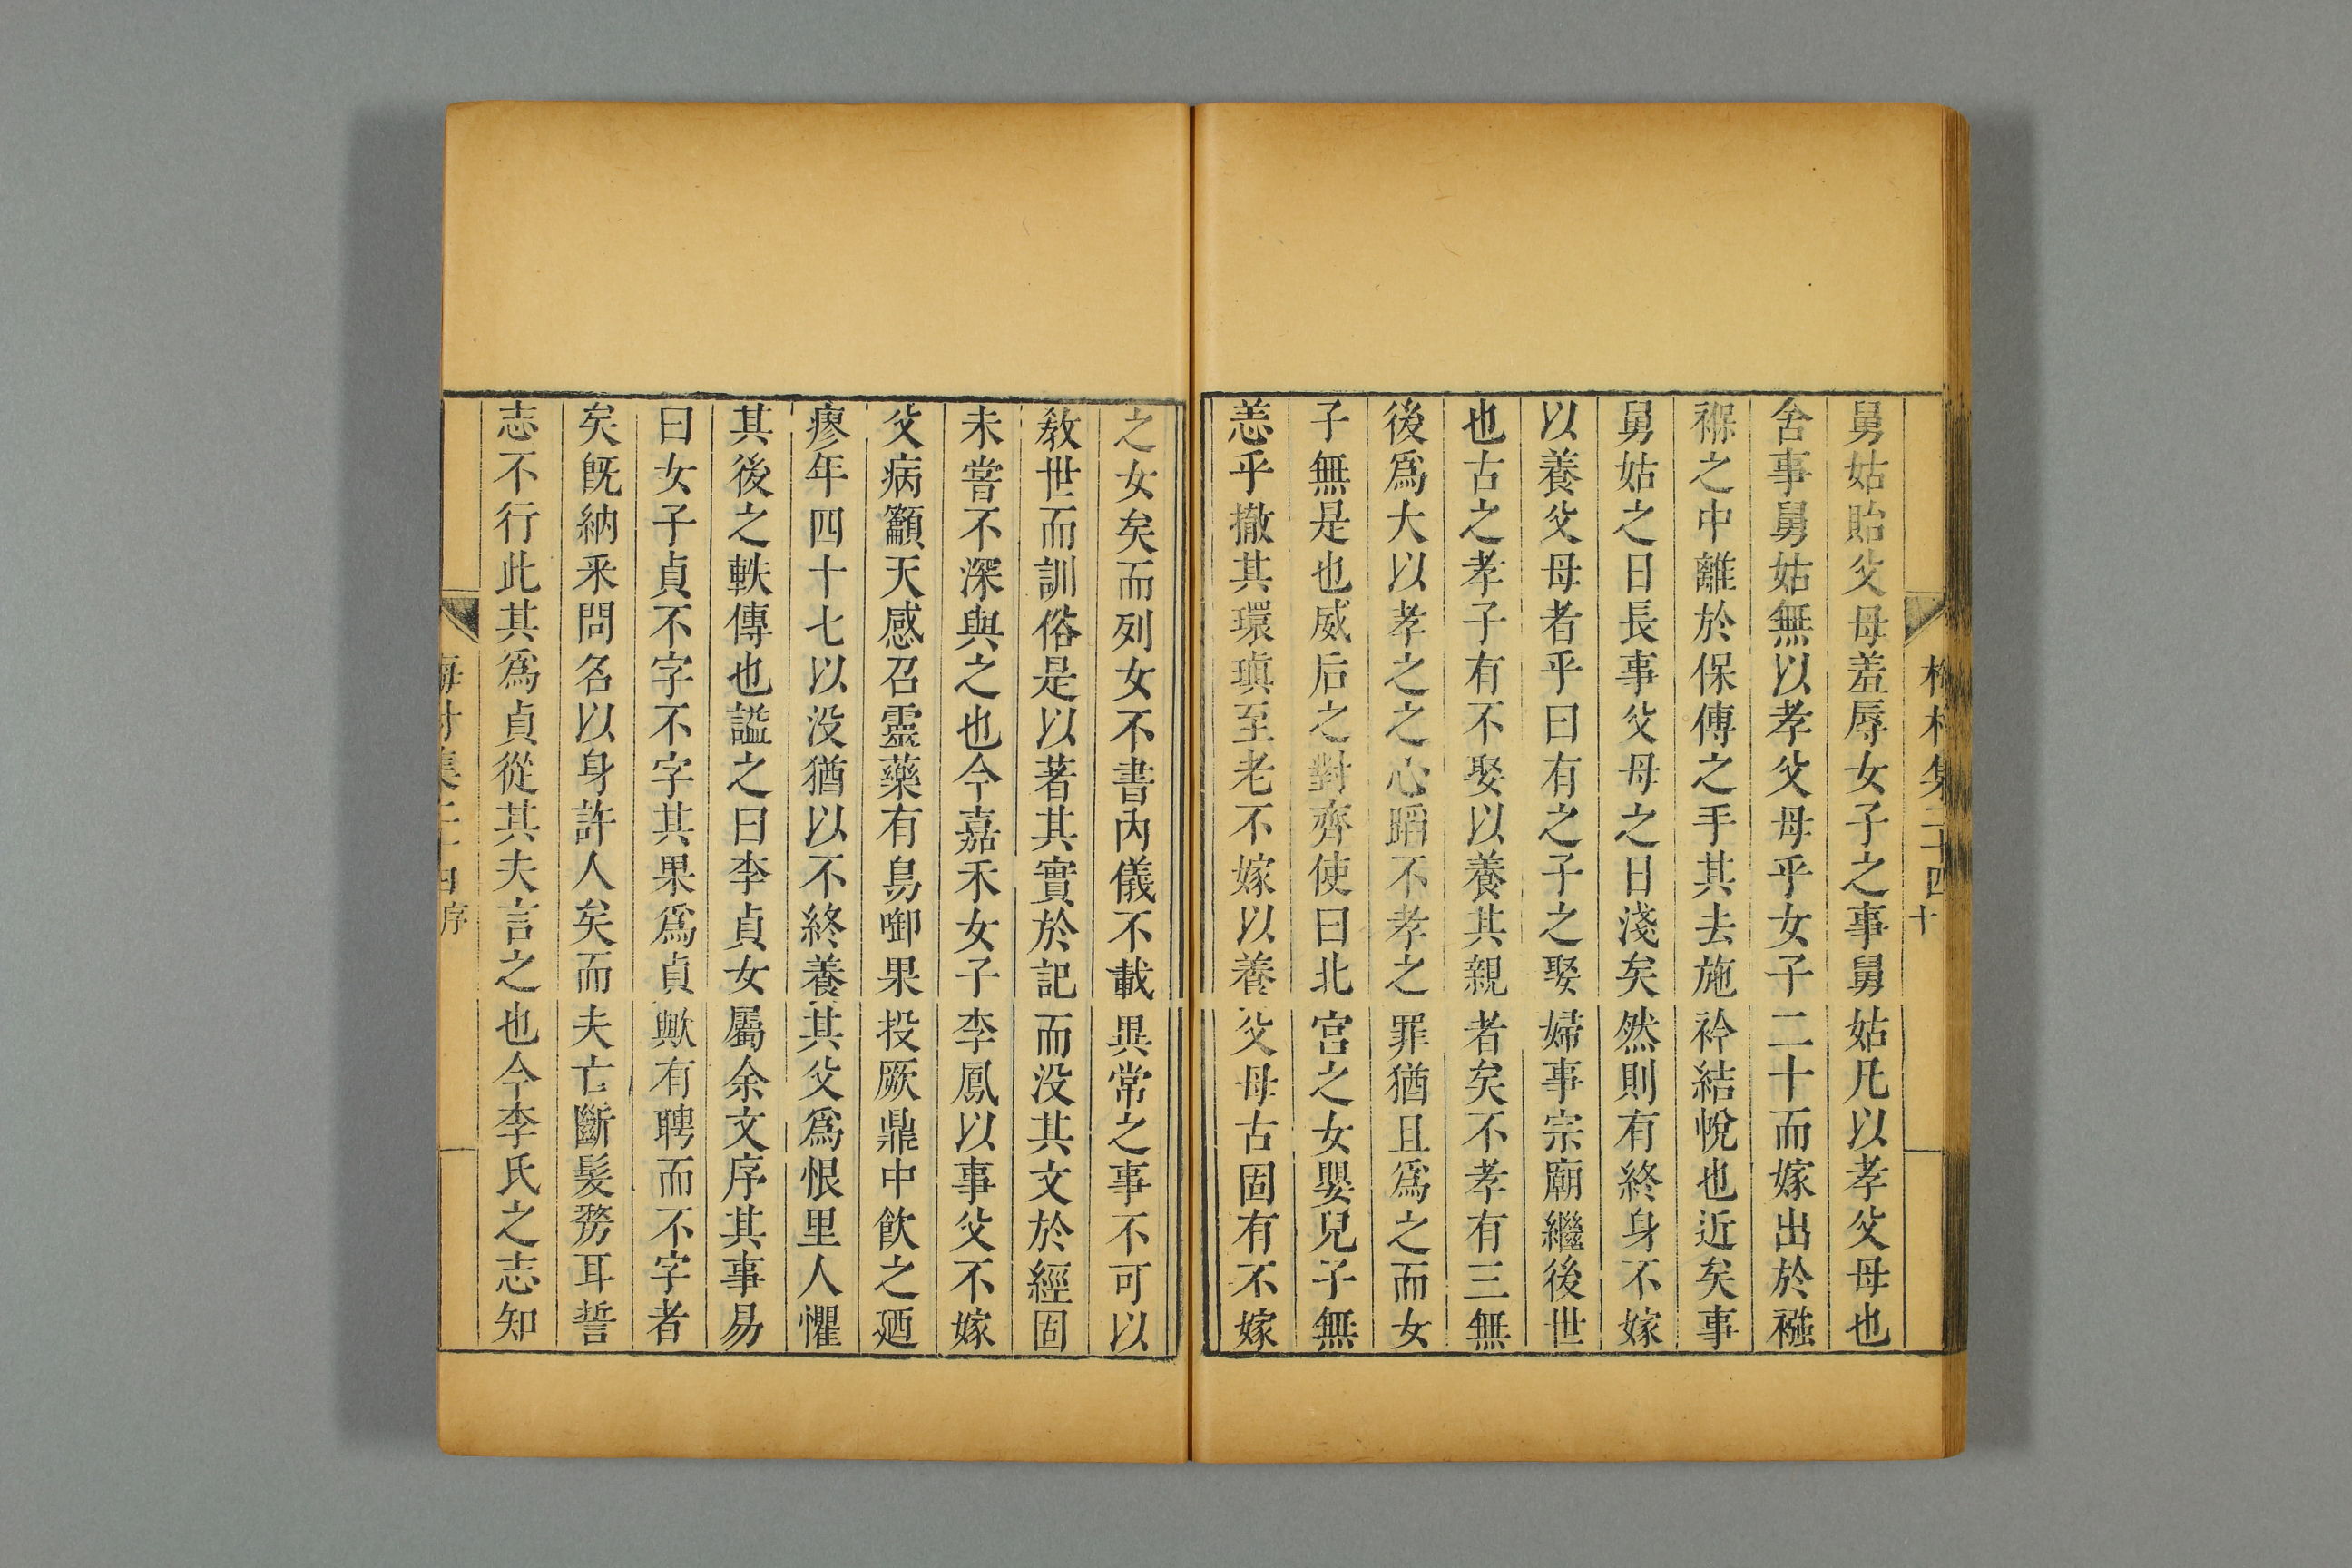 舅姑貽父母羞辱女子之事舅姑凡以孝父母也
舍事舅姑無以孝父母乎女子二十而嫁出於襁
褓之中離於保傅之手其去施衿結帨也近矣事
舅姑之日長事父母之日淺矣然則有終身不嫁
以養父母者乎曰有之子之娶婦事宗廟繼後世
也古之孝子有不娶以養其親者矣不孝有三無
後爲大以孝之之心蹈不孝之罪猶且爲之而女
子無是也威后之對齊使曰北宮之女嬰兒子無
恙乎撤其環瑱至老不嫁以養父母古固有不嫁
之女矣而列女不書內儀不載異常之事不可以
敎世而訓俗是以著其實於記而没其文於經固
未嘗不深與之也今嘉禾女子李鳳以事父不嫁
父病籲天感召靈藥有鳥啣果投厥鼎中飮之廼
瘳年四十七以没猶以不終養其父爲恨里人懼
其後之軼傳也謚之曰李貞女屬余文序其事易
曰女子貞不字不字其果爲貞歟有聘而不字者
矣旣納釆問名以身許人矣而夫亡斷髮剺耳誓
志不行此其爲貞從其夫言之也今李氏之志知
梅村集二十四
十
梅村集二十四
序